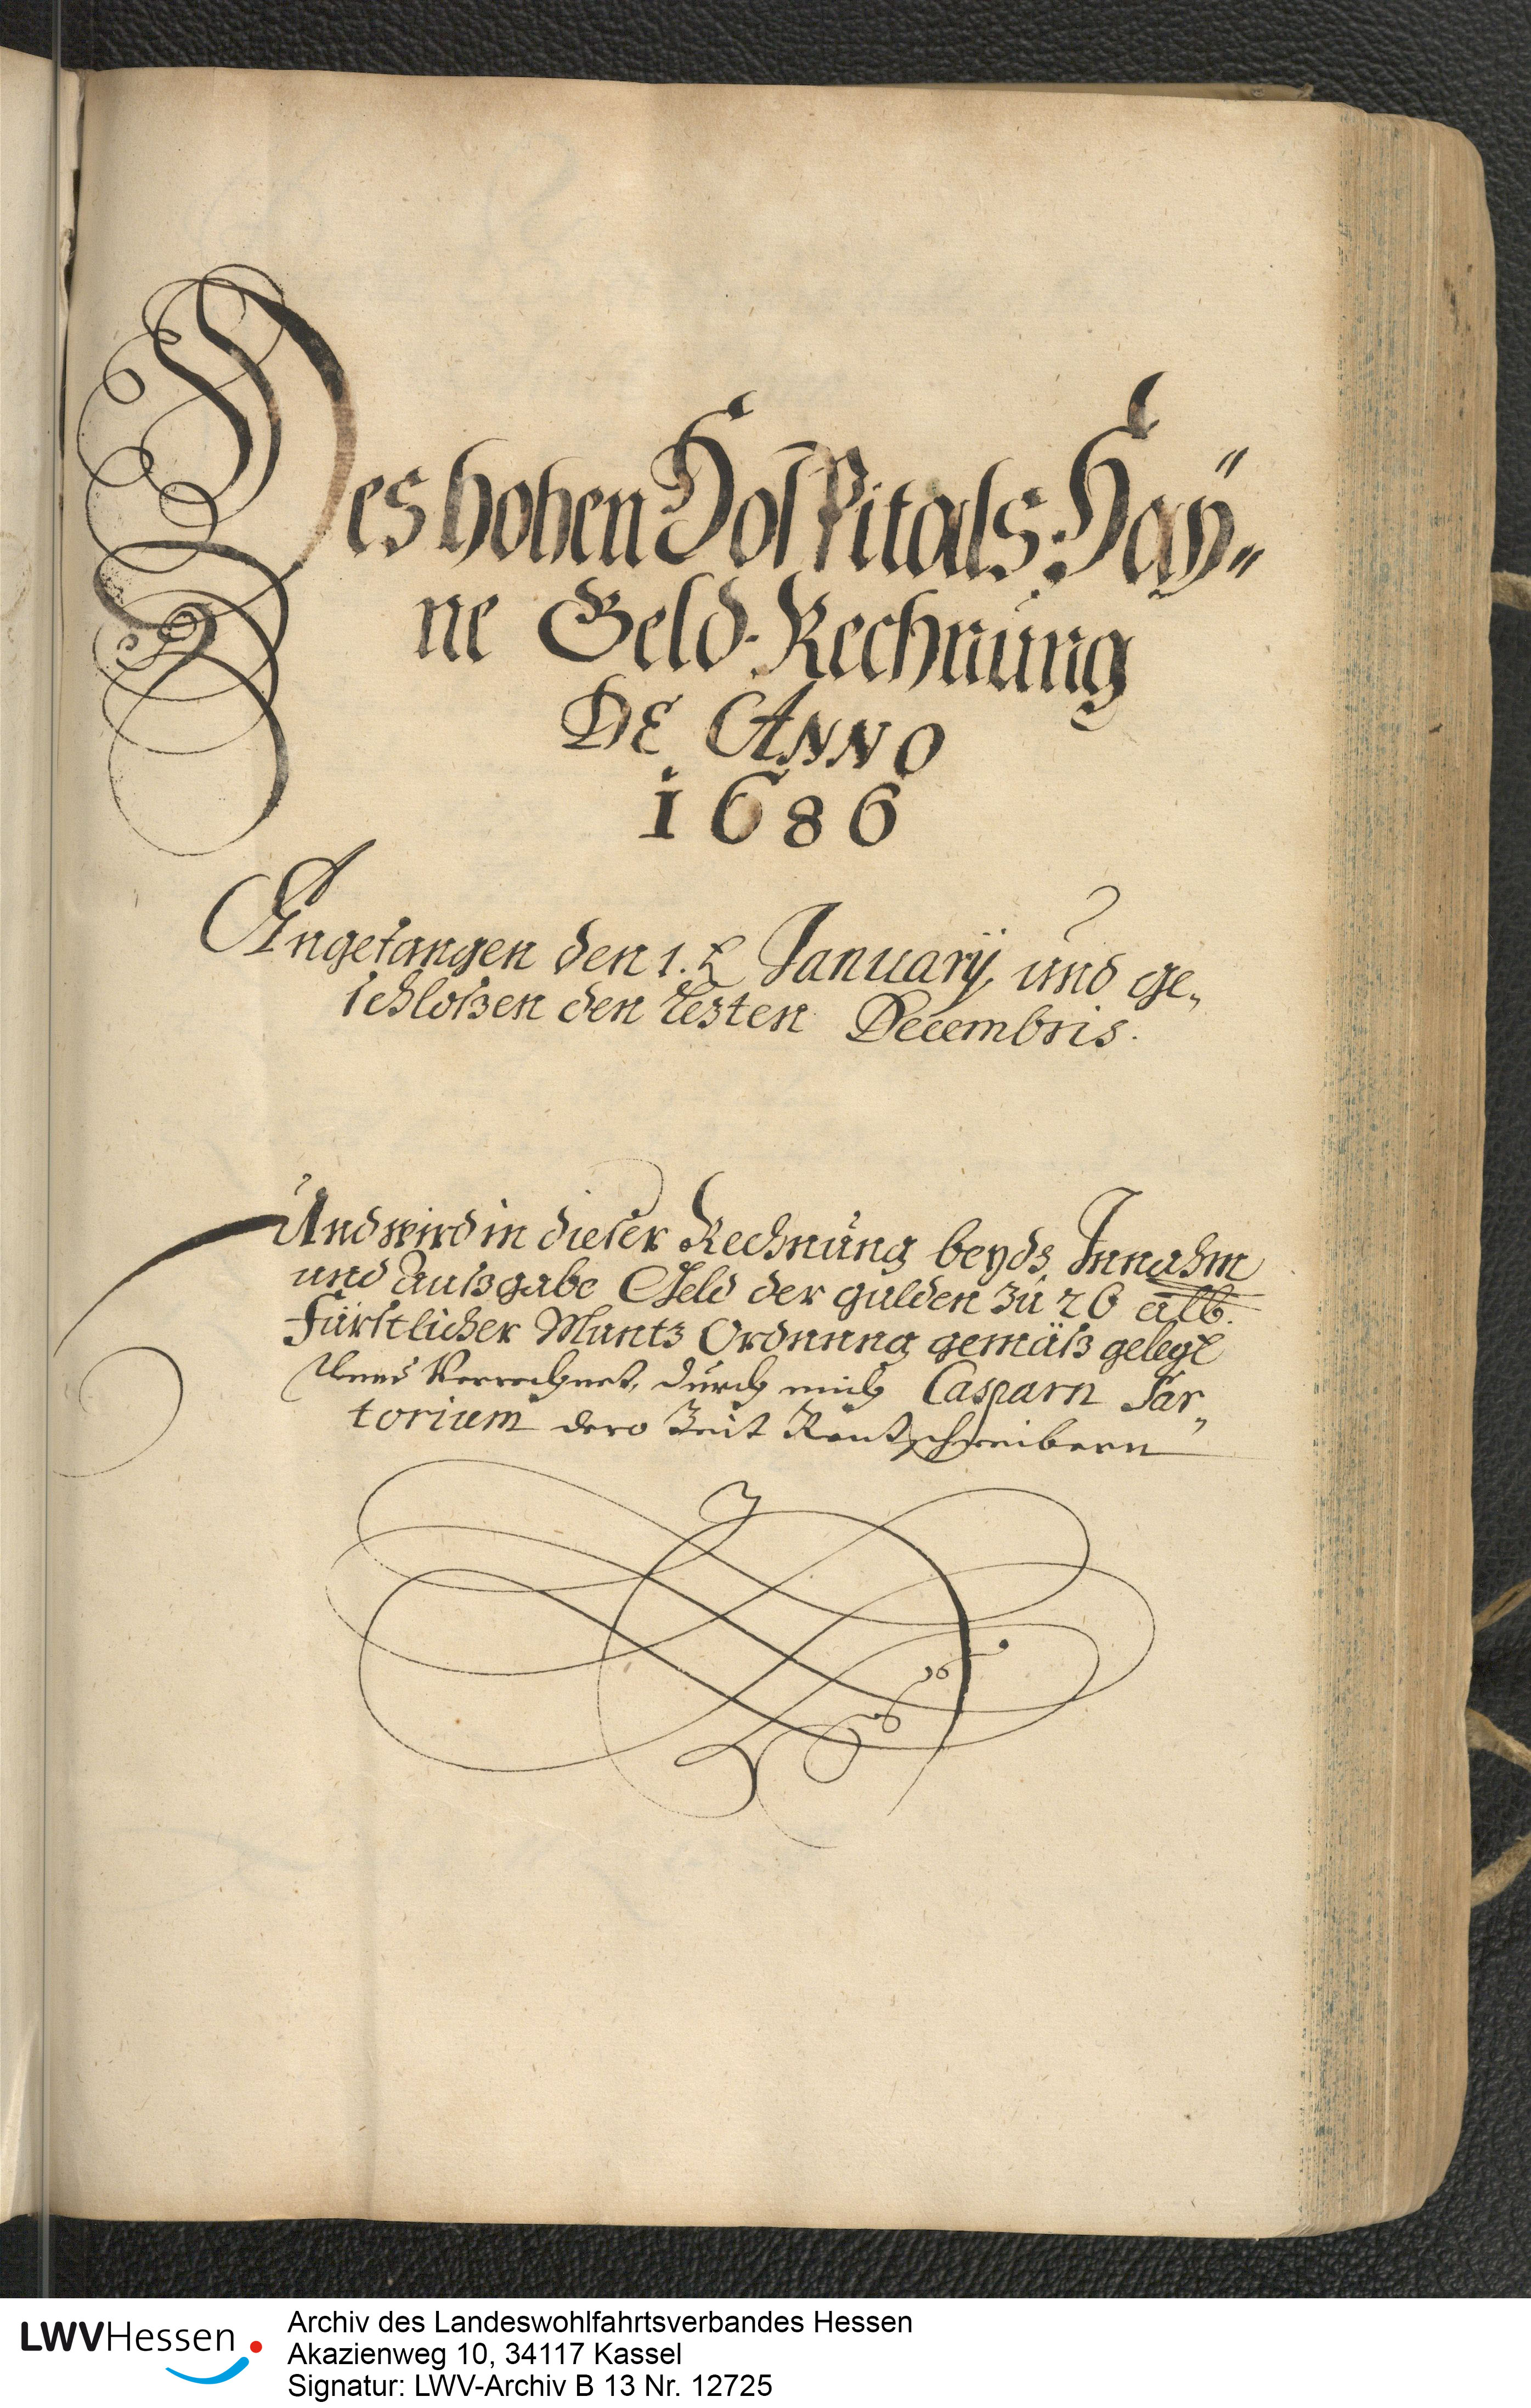 Des hohen Hospitals Hay„
ne Geld-Rechnüng
DE ANNO
1686
Angefangen den 1.t January, und ge„
schloßen den lezten Decembris.
Und wird in dießer Rechnüng beyds Innahm
und Außgabe Geld der gulden zu 26 alb.
Fürstlicher Muntz Ordnung gemäß gelegt
Unnd Verrechnet, dürch mich Casparn Sar„
torium dero Zeit Rentschreibern
LWVHessen
Archiv des Landeswohlfahrtsverbandes Hessen
Akazienweg 10, 34117 Kassel
Signatur: LWV-Archiv B 13 Nr. 12725